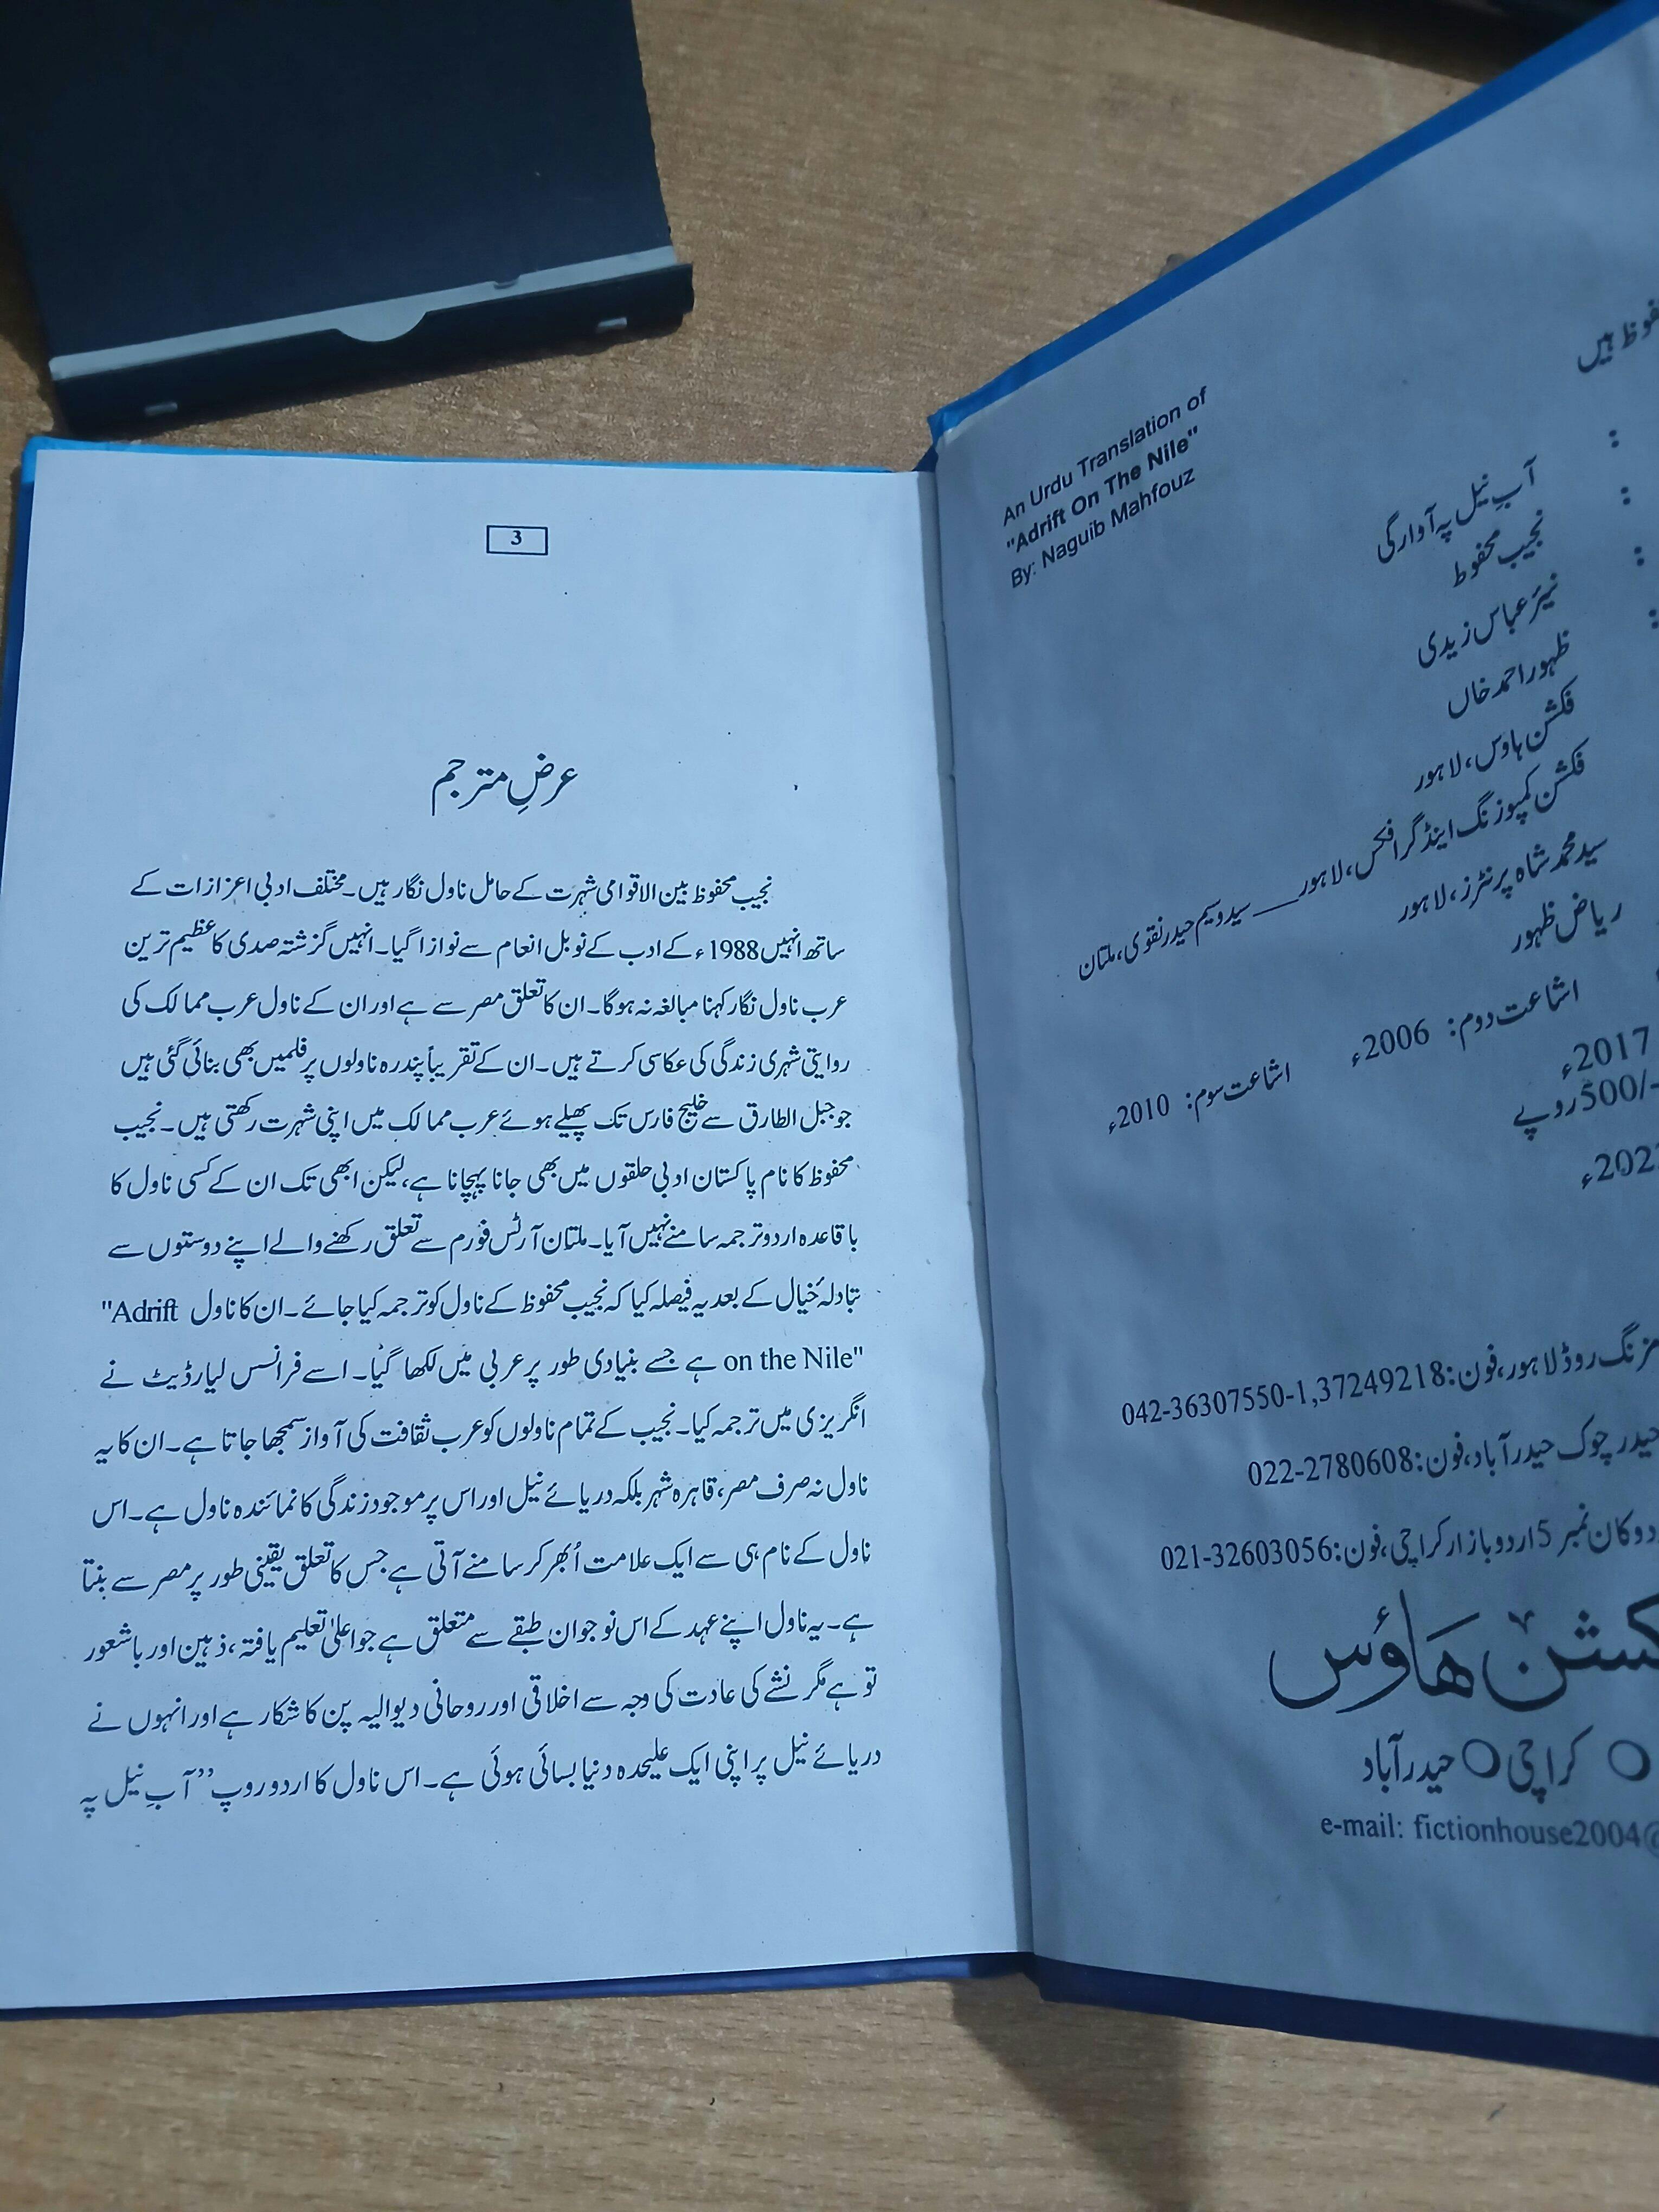 فوظ ہیں
An Urdu Translation of
"Adrift On The Nile"
By: Naguib Mahfouz
: آبِ نیل پہ آوارگی
: نجیب محفوظ
: نیّر عباس زیدی
: ظہور احمد خاں
فکشن ہاوس، لاہور
فکشن کمپوزنگ اینڈ گرافکس، لاہور___سید وسیم حیدر نقوی، ملتان
سید محمد شاہ پرنٹرز، لاہور
ریاض ظہور
اشاعت دوم: 2006ء
اشاعت سوم: 2010ء
2017ء
500/-روپے
ء202
مزنگ روڈ لاہور، فون: 042-36307550-1,37249218
حیدر چوک حیدرآباد، فون: 022-2780608
دوکان نمبر 5 اردو بازار کراچی، فون: 021-32603056
کشن ھاؤس
○ کراچی ○ حیدرآباد
e-mail: fictionhouse2004@
3
عرضِ مترجم
نجیب محفوظ بین الاقوامی شہرت کے حامل ناول نگار ہیں۔ مختلف ادبی اعزازات کے
ساتھ انہیں 1988ء کے ادب کے نوبل انعام سے نوازا گیا۔ انہیں گزشتہ صدی کا عظیم ترین
عرب ناول نگار کہنا مبالغہ نہ ہوگا۔ ان کا تعلق مصر سے ہے اور ان کے ناول عرب ممالک کی
روایتی شہری زندگی کی عکاسی کرتے ہیں۔ ان کے تقریباً پندرہ ناولوں پر فلمیں بھی بنائی گئی ہیں
جو جبل الطارق سے خلیج فارس تک پھیلے ہوئے عرب ممالک میں اپنی شہرت رکھتی ہیں۔ نجیب
محفوظ کا نام پاکستان ادبی حلقوں میں بھی جانا پہچانا ہے، لیکن ابھی تک ان کے کسی ناول کا
باقاعدہ اردو ترجمہ سامنے نہیں آیا۔ ملتان آرٹس فورم سے تعلق رکھنے والے اپنے دوستوں سے
تبادلۂ خیال کے بعد یہ فیصلہ کیا کہ نجیب محفوظ کے ناول کو ترجمہ کیا جائے۔ ان کا ناول "Adrift
on the Nile" ہے جسے بنیادی طور پر عربی میں لکھا گیا۔ اسے فرانسس لیارڈیٹ نے
انگریزی میں ترجمہ کیا۔ نجیب کے تمام ناولوں کو عرب ثقافت کی آواز سمجھا جاتا ہے۔ ان کا یہ
ناول نہ صرف مصر، قاہرہ شہر بلکہ دریائے نیل اور اس پر موجود زندگی کا نمائندہ ناول ہے۔ اس
ناول کے نام ہی سے ایک علامت اُبھر کر سامنے آتی ہے جس کا تعلق یقینی طور پر مصر سے بنتا
ہے۔ یہ ناول اپنے عہد کے اس نوجوان طبقے سے متعلق ہے جو اعلیٰ تعلیم یافتہ، ذہین اور باشعور
تو ہے مگر نشے کی عادت کی وجہ سے اخلاقی اور روحانی دیوالیہ پن کا شکار ہے اور انہوں نے
دریائے نیل پر اپنی ایک علیحدہ دنیا بسائی ہوئی ہے۔ اس ناول کا اردو روپ ”آبِ نیل پہ